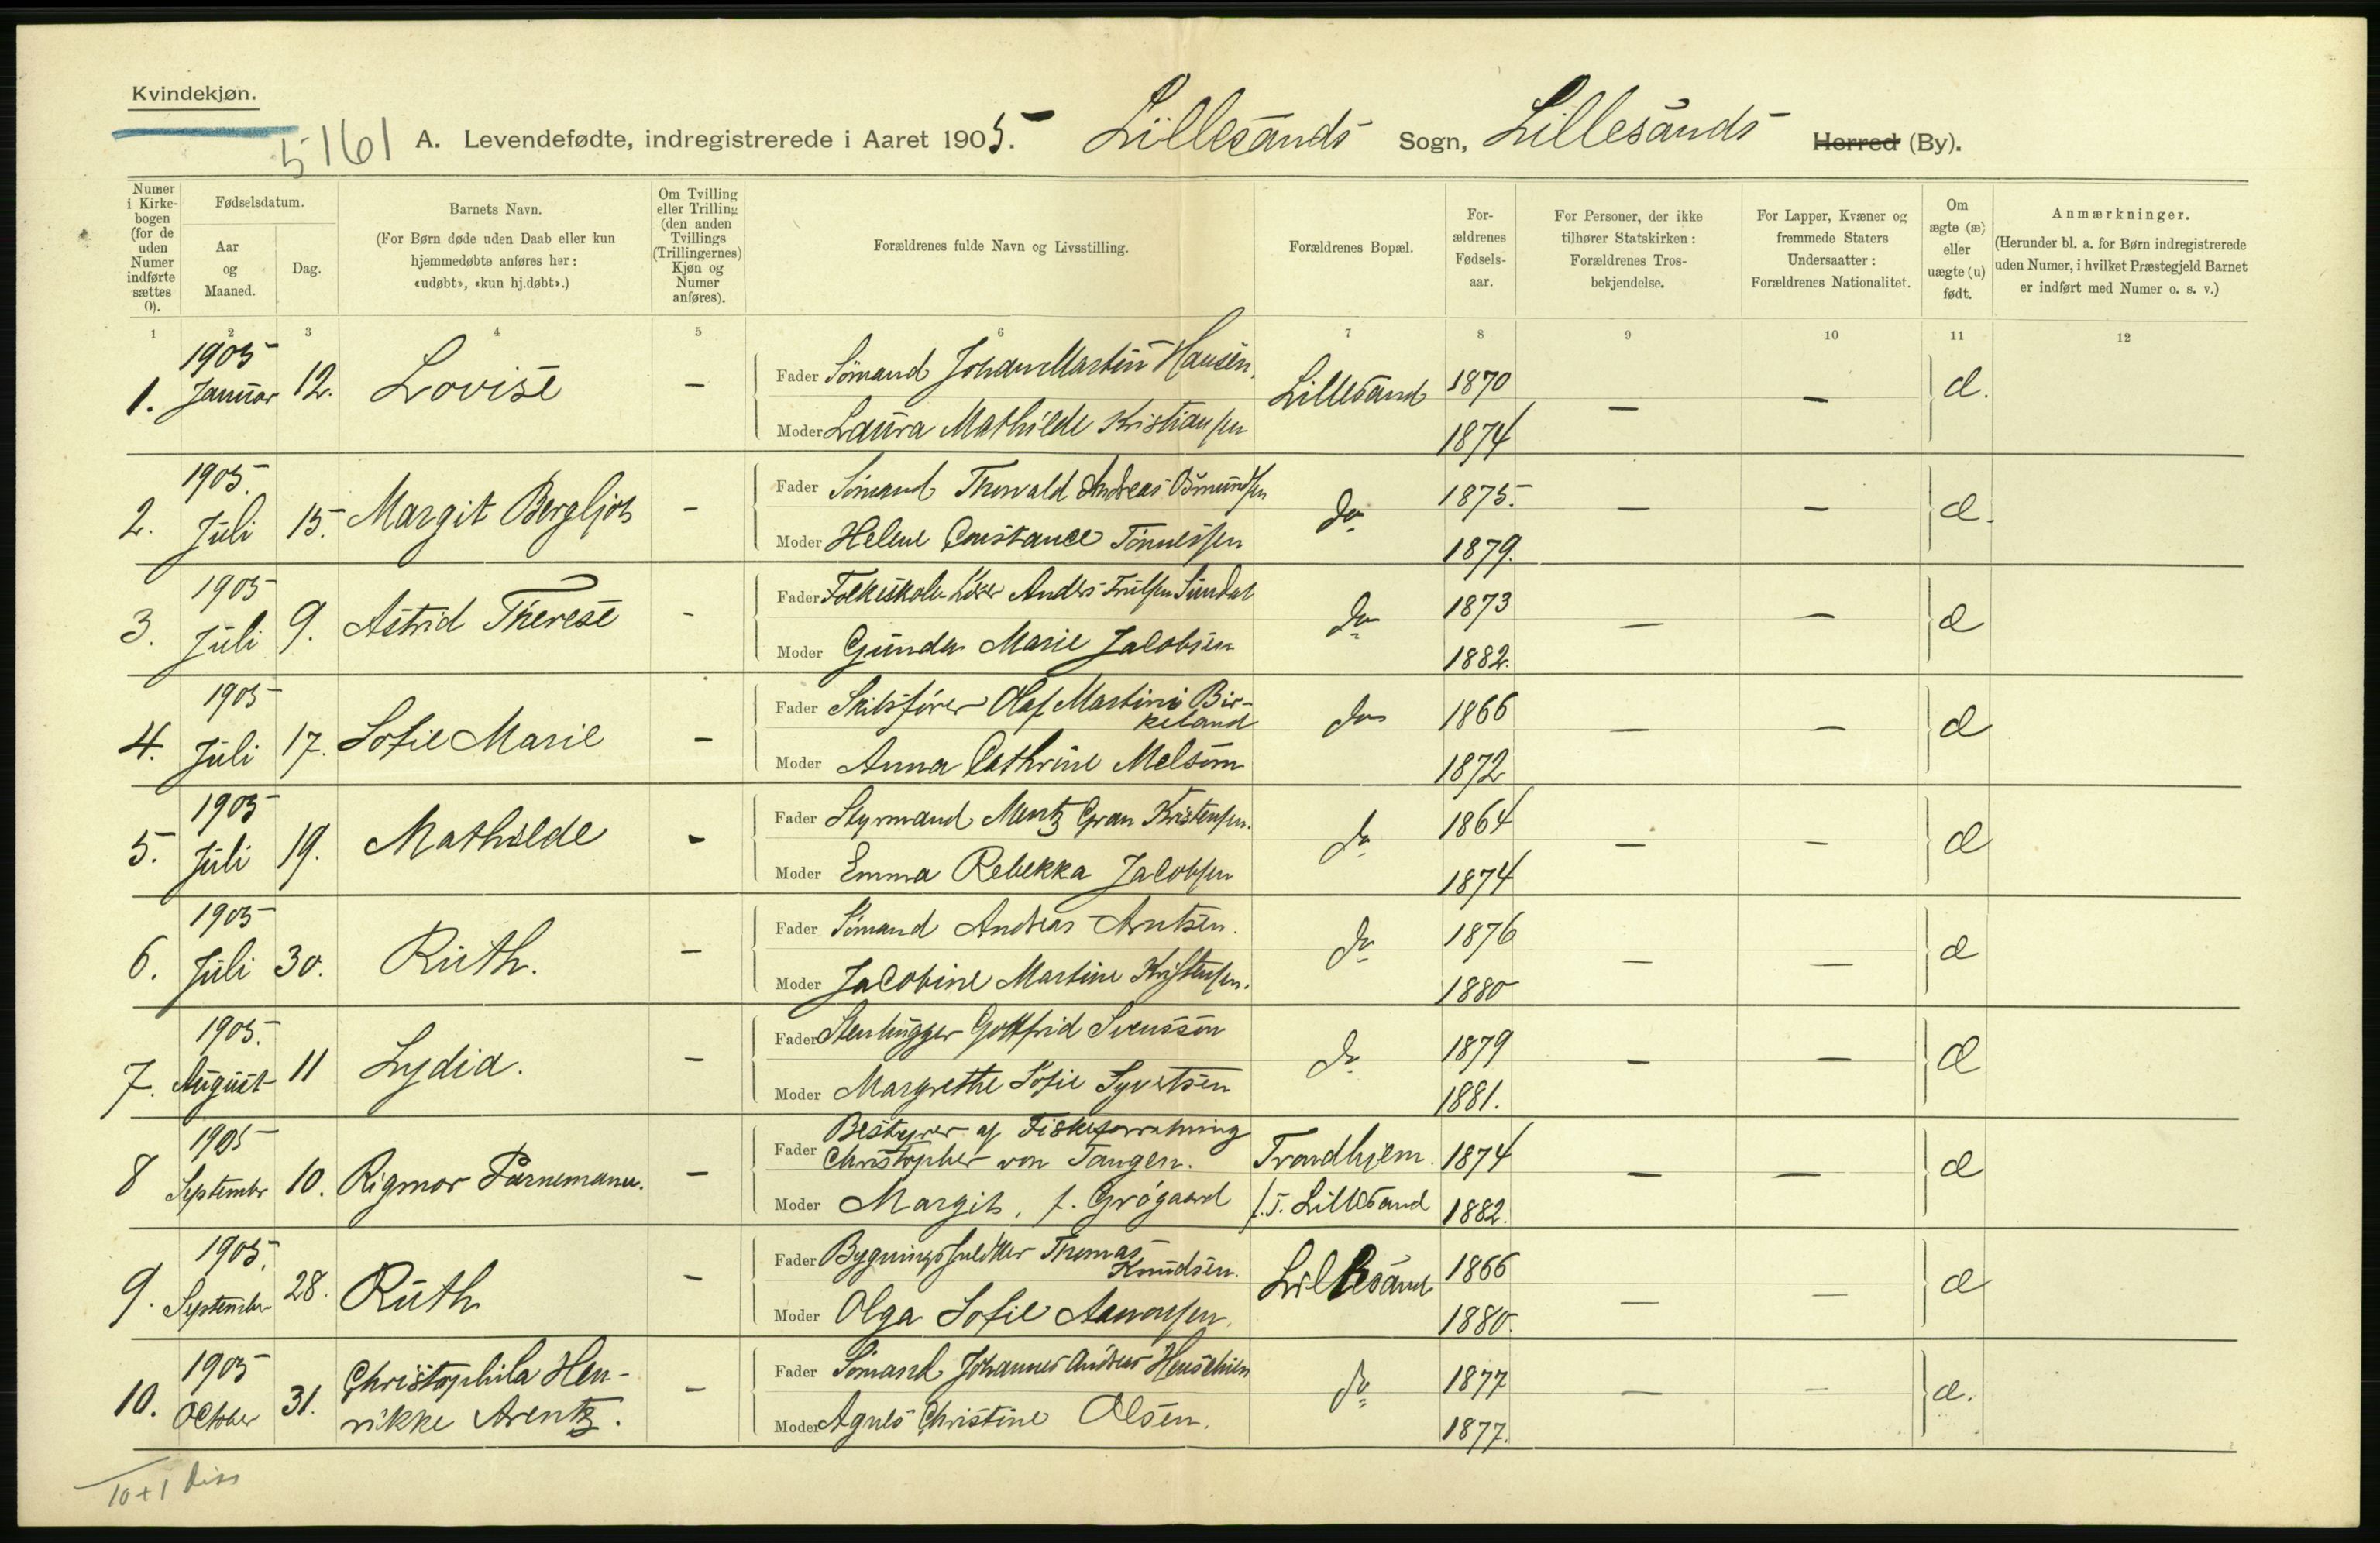 Kvindekjøn.
5161 A. Levendefødte, indregistrerede i Aaret 1905. Lillesands Sogn, Lillesands Herred (By).
Numer i Kirkebogen (for de uden Numer indførte sættes 0).
Fødselsdatum.
Aar og Maaned.
Dag.
Barnets Navn.
(For Børn døde uden Daab eller kun hjemmedøbte anføres her: «udøbt», «kun hj.døbt».)
Om Tvilling eller Trilling (den anden Tvillings (Trillingernes) Kjøn og Numer anføres).
Forældrenes fulde Navn og Livsstilling.
Forældrenes Bopæl.
For-ældrenes Fødsels-aar.
For Personer, der ikke tilhører Statskirken: Forældrenes Tros-bekjendelse.
For Lapper, Kvæner og fremmede Staters Undersaatter: Forældrenes Nationalitet.
Om ægte (æ) eller uægte (u) født.
Anmærkninger.
(Herunder bl. a. for Børn indregistrerede uden Numer, i hvilket Præstegjeld Barnet er indført med Numer o. s. v.)
1 2 3 4 5 6 7 8 9 10 11 12
1. 1905 Januar 12. Lovise – Fader Sømand Johan Martin Hansen. Lillesand 1870 – – æ.
Moder Laura Mathilde Kristiansen 1874
2. 1905. Juli 15. Margit Bergljot – Fader Sømand Thorvald Andreas Osmundsen do 1875. – – æ.
Moder Helene Constance Tønnessen 1879.
3. 1905 Juli 9. Astrid Therese – Fader Folkeskolelærer Anders Trulsen Sundat do 1873 – – æ
Moder Gunda Marie Jacobsen 1882.
4. 1905 Juli 17. Sofie Marie – Fader Skibsfører Olaf Martini Bir-
keland do 1866 – – æ
Moder Anna Cathrine Melsom 1872
5. 1905 Juli 19. Mathilde – Fader Styrmand Mentz Gran Kristensen. do 1864 – – æ
Moder Emma Rebekka Jacobsen 1874
6. 1905 Juli 30. Ruth. – Fader Sømand Andreas Arntsen. do 1876 – – æ
Moder Jacobine Martine Kristensen. 1880
7. 1905. August 11 Lydia. – Fader Stenhugger Gottfrid Svensson do 1879 – – æ
Moder Margrethe Sofie Syvertsen 1881.
8 1905 Septembr 10. Rigmor Parnemann. – Fader Bestyrer af Fiskeforretning
Christopher von Tangen. Trondhjem. 1874 – – æ
Moder Margit, f. Grøgaard f.T. Lillesand 1882.
9. 1905. September 28. Ruth – Fader Bygningssnedker Thomas
Knudsen. Lillesand 1866 – – æ
Moder Olga Sofie Aanonsen. 1880.
10. 1905 October 31. Christophila Hen-
rikke Arentz. – Fader Sømand Johannes Andreas Henschien do 1877 – – æ.
Moder Agnes Christine Olsen. 1877.
10 + 1 diss